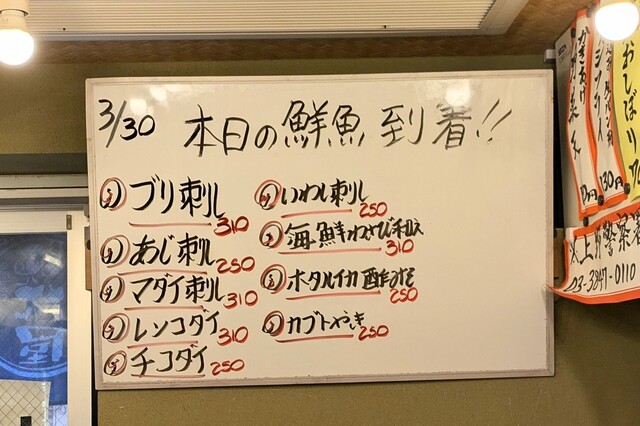 3/30 本日の鮮魚到着!!
ブリ刺し 310
あじ刺し 250
マダイ刺し 310
レンコダイ 310
チコダイ 250
いわし刺し 250
海鮮わさび和え 310
ホタルイカ酢みそ 250
カブトやき 250
おしぼり
130円
上野警察署
03-3847-0110